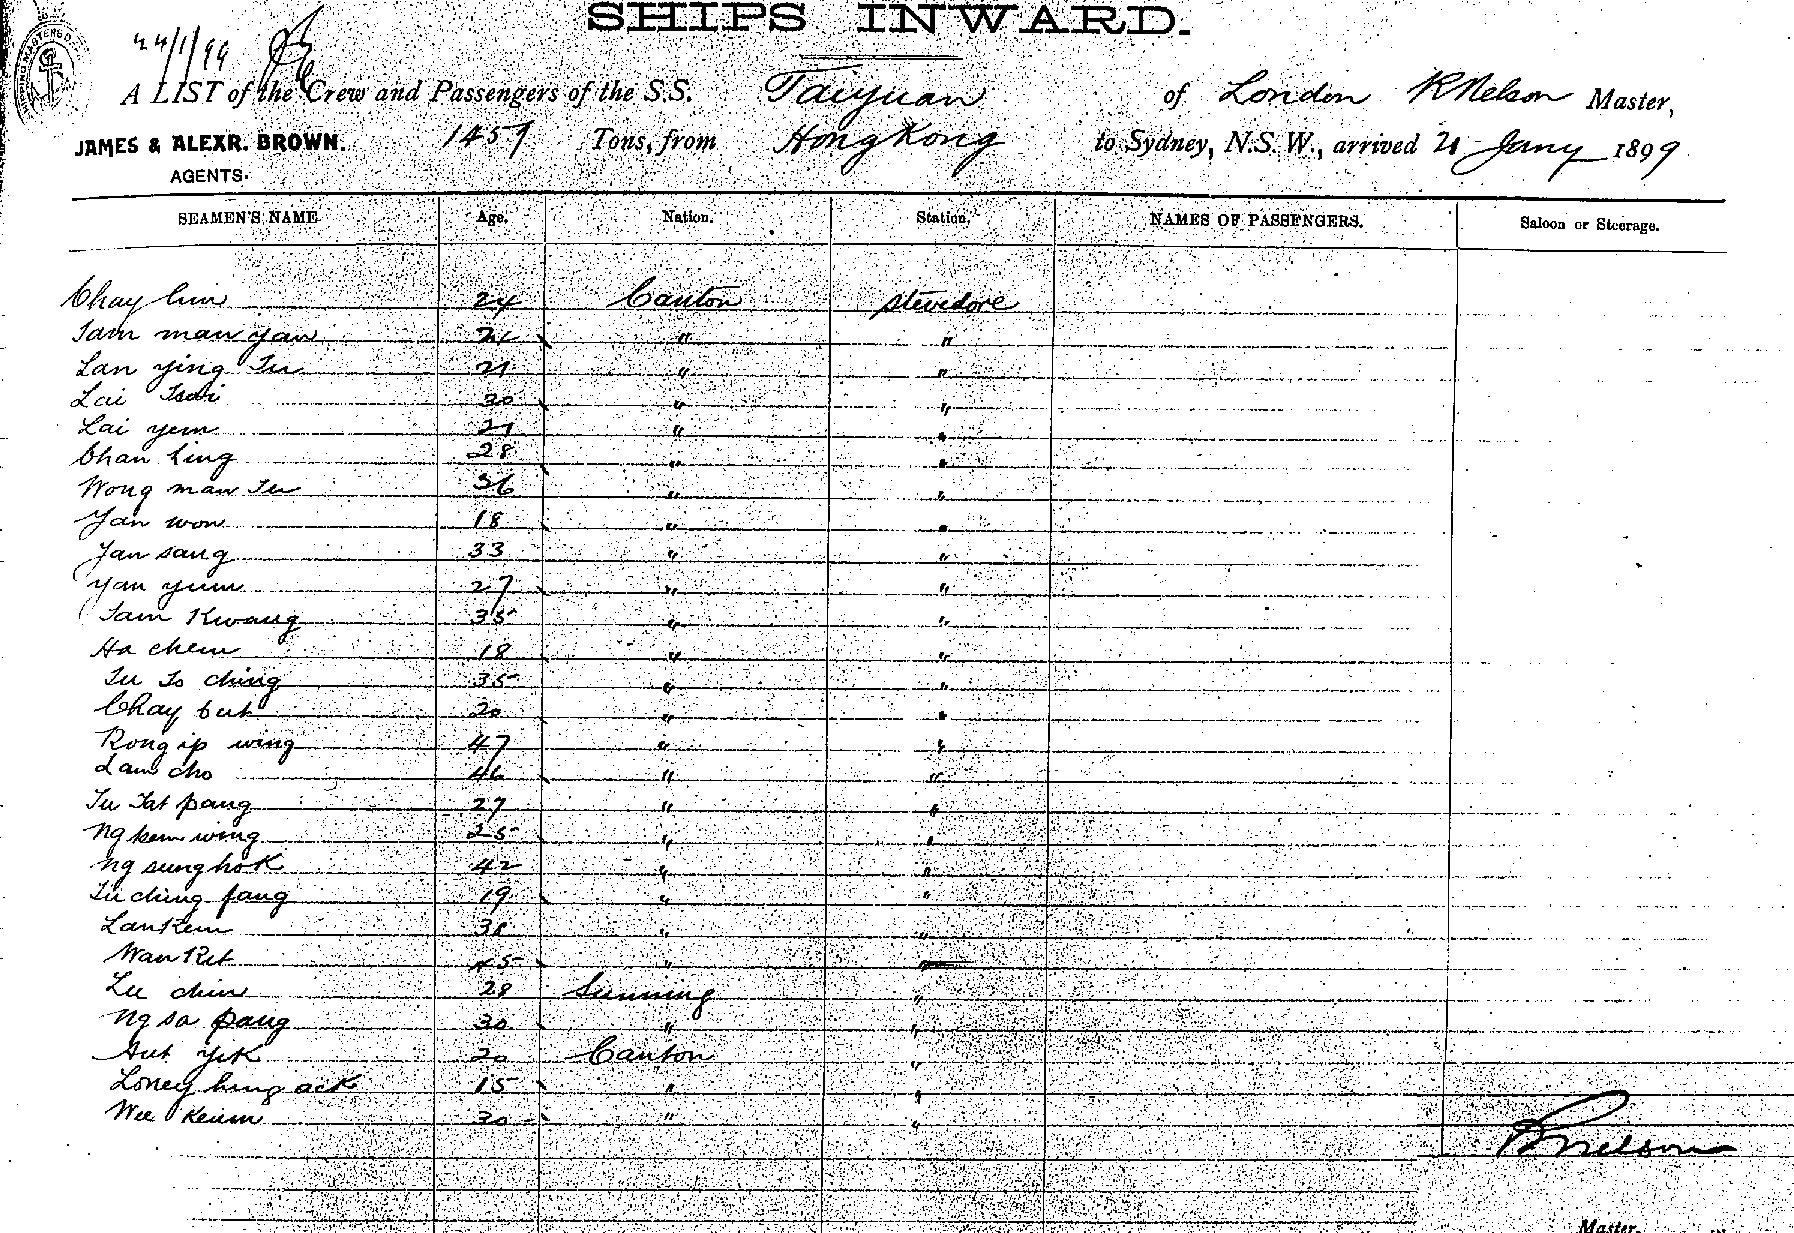 SHIPS INWARD.
24/1/99
A LIST of the Crew and Passengers of the S.S. Taiyuan of London R Nelson Master,
JAMES & ALEXR. BROWN. 1457 Tons, from HongKong to Sydney, N.S.W., arrived 21 Jany 1899
AGENTS.
SEAMEN'S NAME Age. Nation. Station. NAMES OF PASSENGERS. Saloon or Steerage.
Chay him 24 Canton stevedore
Tam man yau 24 " "
Lan ying Tu 21 " "
Lai Tsoi 30 " "
Lai yem 21 " "
Chan hing 28 " "
Wong man Tu 36 " "
Yan won 18 " "
Yan sang 33 " "
Yan yum 27 " "
Tam Kwang 35 " "
Ha chem 18 " "
Tu So ching 35 " "
Chay but 20 " "
Rong ip wing 47 " "
Lam cho 46 " "
Tu Tat pang 27 " "
Ng kem wing 25 " "
Ng sung hok 42 " "
Tu ching fang 19 " "
Lan Kem 38 " "
Wan Kit 45 " "
Lu chin 28 Sunning "
Ng sa pang 30 " "
Aut Yik 20 Canton "
Loney hing ack 15 " "
Wee Keum 30 " "
R Nelson
Master.